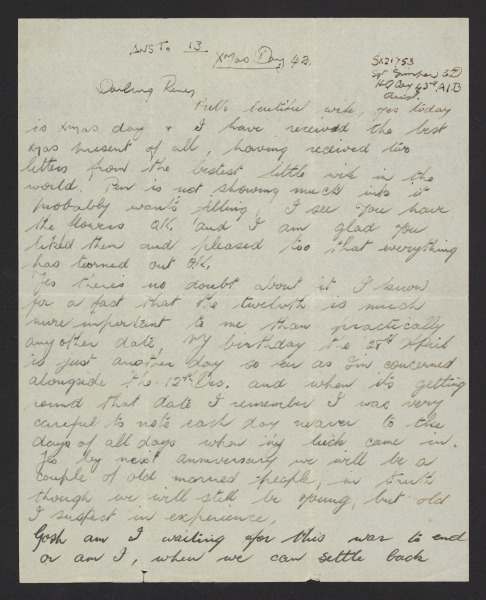 ANS To 13
Xmas Day 42.
SX21753
Sgt Simper AD
HQ Coy 43rd, A.I.B
Aust.
Darling Rene,
Hello beautiful wife, yes today
is xmas day & I have received the best
xmas present of all, having received two
letters from the bestest little wife in the
world. Pen is not showing much ink it
probably wants filling. I see you have
the OK. and I am glad you
liked them and pleased too that everything
has turned out OK.
Yes theres no doubt about it I know
for a fact that the twelvth is much
more important to me than practically
any other date, My birthday the 28th April
is just another day so far as I'm concerned
alongside the 12th Dec. and when its getting
round that date I remember I was very
careful to note each day nearer to the
days of all days when my luck came in.
by next anniversary we will be a
couple of old married people, in truth
though we will still be young, but old
I suspect in experience.
Gosh am I waiting for this war to end
or am I, when we can settle back